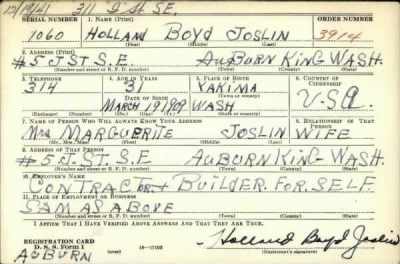 12/19/41 311 I St SE.
SERIAL NUMBER 1. Name (Print) ORDER NUMBER
1060 HOLLAND BOYD JOSLIN 3914
(First) (Middle) (Last)
2. Address (Print)
#5 J ST. S.E AUBURN KING WASH.
(Number and street or R. F. D. number) (Town) (County) (State)
3. Telephone 4. Age in Years 5. Place of Birth 6. Country of Citizenship
314 31 YAKIMA
Date of Birth (Town or county)
MARCH 19 1909 WASH U-S A
(Mo.) (Day) (Yr.) (State or country)
7. Name of Person Who Will Always Know Your Address 8. Relationship of That Person
Mrs MARGUERITE JOSLIN WIFE
(Mr., Mrs., Miss) (First) (Middle) (Last)
9. Address of That Person
#5 J. ST. S.E AUBURN KING WASH.
(Number and street or R. F. D. number) (Town) (County) (State)
10. Employer's Name
CONTRACTOR & BUILDER FOR SELF
11. Place of Employment or Business
SAM AS ABOVE
(Number and street or R. F. D. number) (Town) (County) (State)
I Affirm That I Have Verified Above Answers and That They Are True.
REGISTRATION CARD
D. S. S. Form 1 16—17105 Holland Boyd Joslin
AUBURN (Registrant's signature)